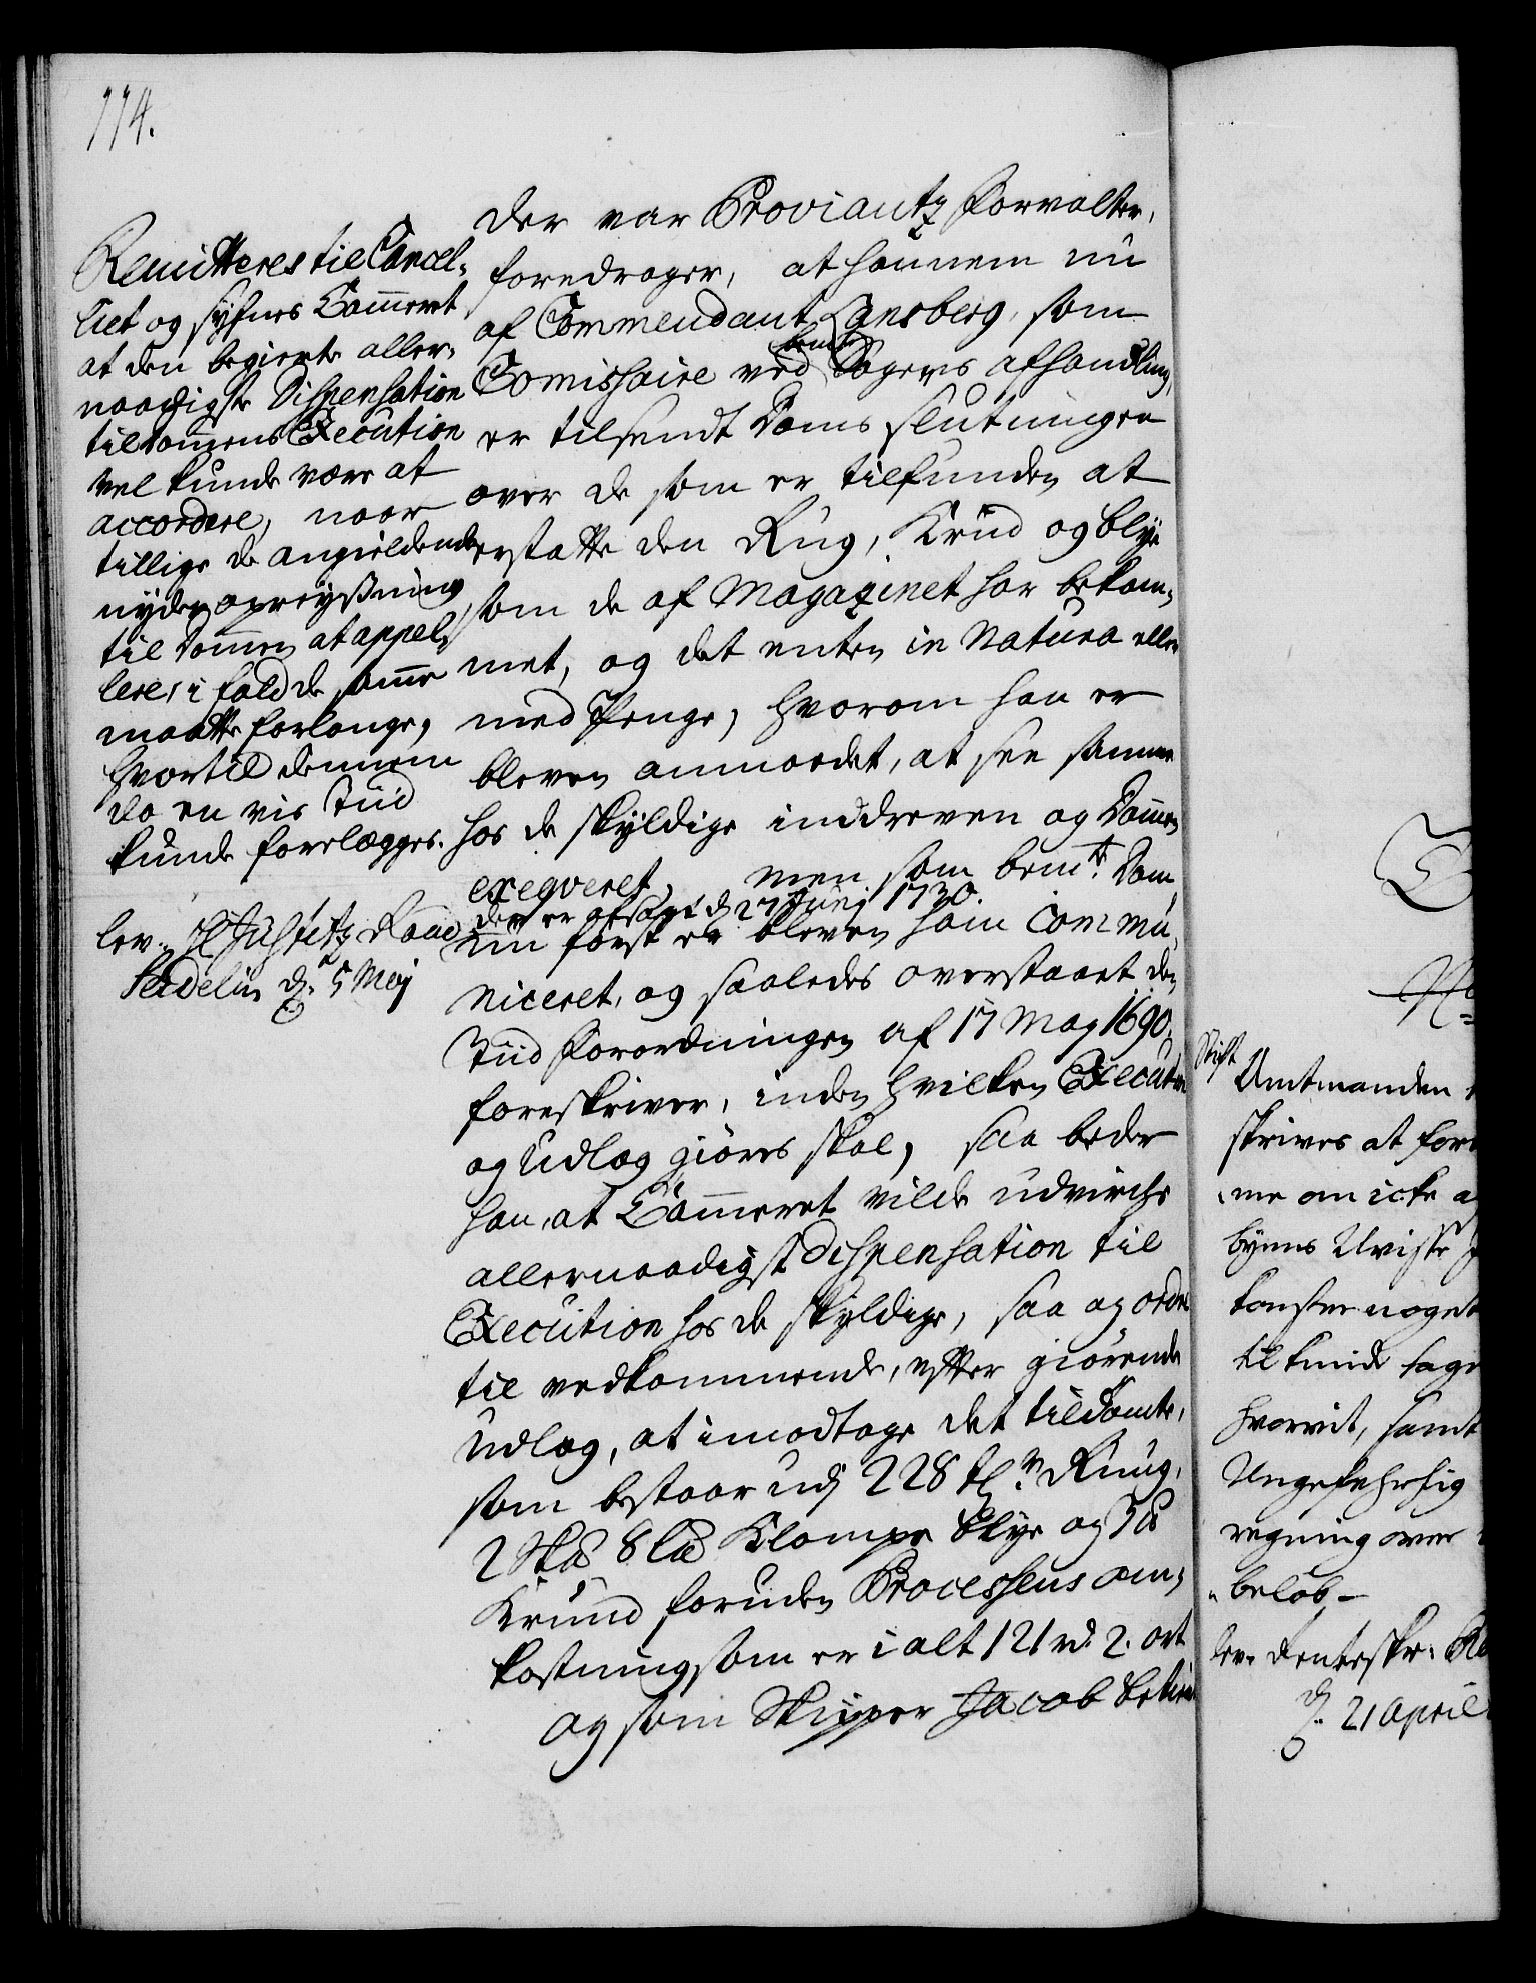 114.
Remitteres til Cancel-
liet og synes Cammeret
at den begierte aller-
naadigste Dispensation
til Dommens Execution
vel kunde være at
accordere, naar
tillige de angieldende
nyder opreysning
til Dommen at appel-
lere, i fald de samme
maatte forlange,
hvortil dennem
da en vis Tiid
kunde forelægges.
lev. H. Justitz Raad
d. 5 Maj
der var Proviantz forvalter,
foredrager, at hannem nu
af Commendant Landsberg, som
Comissaire ved bemte Sagers afhandling,
er tilsendt Doms slutningen
over de som er tilfunden at
erstatte den Rug, Krud og blye
som de af Magazinet har bekom-
met, og det enten in Natura eller
med Penge, hvorom han er
bleven anmodet, at see samme
hos de skyldige inddreven og Dommen
exeqveret, men som bemte Dom
der er afsagt d. 27 Junj 1730.
nu først er bleven ham commu-
niceret, og saaledes overstaaet den
Tiid Forordningen af 17 Maj 1690.
foreskriver, inden hvilken Execution
og Udlæg giøres skal, saa beder
han, at Cammeret vilde udvirche
allernaadigst Dispensation til
Execution hos de skyldige, saa og ordre
til vedkommende, efter giørende
Udlæg, at imodtage det tildømte,
som bestaar udj 228 Rug,
2 8 Klompe blye og
Krud foruden Processens om-
kostning som er i alt 121 rd. 2. ort
og som Skipper Jacob
Stift
Amtmanden
skrives at for
me om icke a
byens Uvisse
kanskee noget
tilkunde tage
hvorvit, samt
Ungefehrlig
regning over
beløb-
lev. Renteskr:
d. 21 April